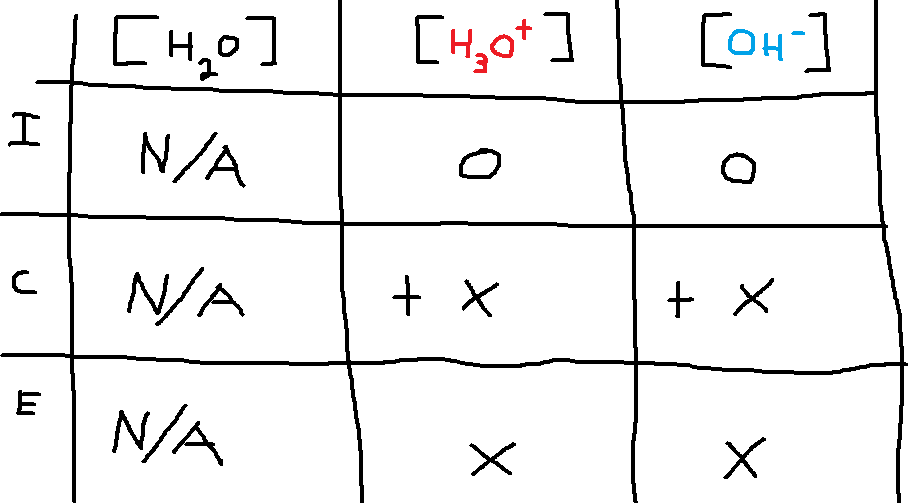 [H₂O] [H₃O⁺] [OH⁻]
I N/A 0 0
C N/A + x + x
E N/A x x